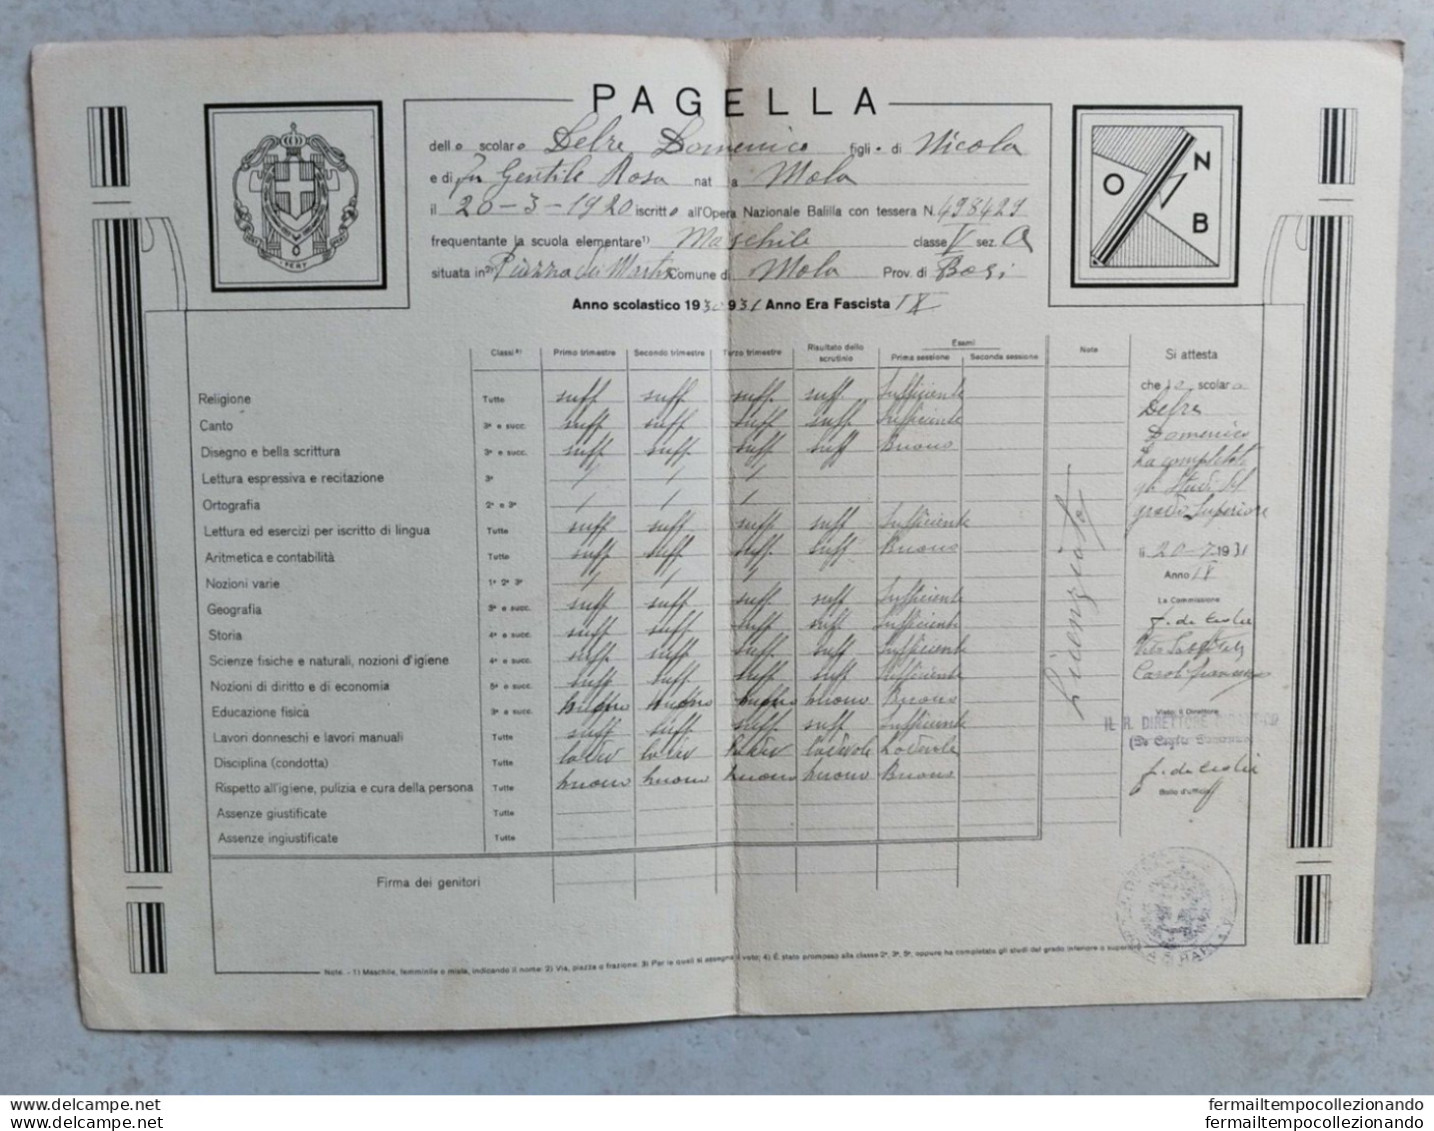 PAGELLA
dello scolaro Delre Domenico figlio di Nicola
e di fu Gentile Rosa nat a Mola
il 20-3-1920 iscritto all'Opera Nazionale Balilla con tessera N. 498429
frequentante la scuola elementare 1) Maschile classe V sez. A
situata in 2) Piazza dei Martiri Comune di Mola Prov. di Bari
Anno scolastico 1930 931 Anno Era Fascista IX
O N B
FERT
Classi 3) Primo trimestre Secondo trimestre Terzo trimestre Risultato dello scrutinio Esami Prima sessione Seconda sessione Note
Religione Tutte suff suff suff. suff. Sufficiente
Canto 3ª e succ. suff suff. suff suff Sufficiente
Disegno e bella scrittura 3ª e succ. suff. suff. suff. suff Buono
Lettura espressiva e recitazione 3ª / / /
Ortografia 2ª e 3ª / / /
Lettura ed esercizi per iscritto di lingua Tutte suff suff. suff suff Sufficiente
Aritmetica e contabilità Tutte suff suff suff. suff Buono
Nozioni varie 1ª 2ª 3ª / / /
Geografia 3ª e succ. suff suff. suff suff Sufficiente
Storia 4ª e succ. suff suff. suff. suff Sufficiente
Scienze fisiche e naturali, nozioni d'igiene 4ª e succ. suff. suff. suff. suff Sufficiente
Nozioni di diritto e di economia 5ª e succ. suff. suff. suff suff. Sufficiente
Educazione fisica 3ª e succ. buono buono buono buono Buono
Lavori donneschi e lavori manuali Tutte suff suff suff. suff. Sufficiente
Disciplina (condotta) Tutte lodev lodev lodev lodevole Lodevole
Rispetto all'igiene, pulizia e cura della persona Tutte buono buono buono buono Buono
Assenze giustificate Tutte
Assenze ingiustificate Tutte
Firma dei genitori
Licenziato
Si attesta
che lo scolaro
Delre
Domenico
ha completato
gli studi del
grado superiore
il 20-7-1931
Anno IX
La Commissione
Visto: il Direttore
IL R. DIRETTORE DIDATTICO
Bollo d'ufficio
Note. - 1) Maschile, femminile o mista, indicando il nome; 2) Via, piazza o frazione; 3) Per le quali si assegna il voto; 4) È stato promosso alla classe 2ª, 3ª, 5ª, oppure ha completato gli studi del grado inferiore o superiore
fermailtempocollezionando
fermailtempocollezionando
fermailtempocollezionando
fermailtempocollezionando